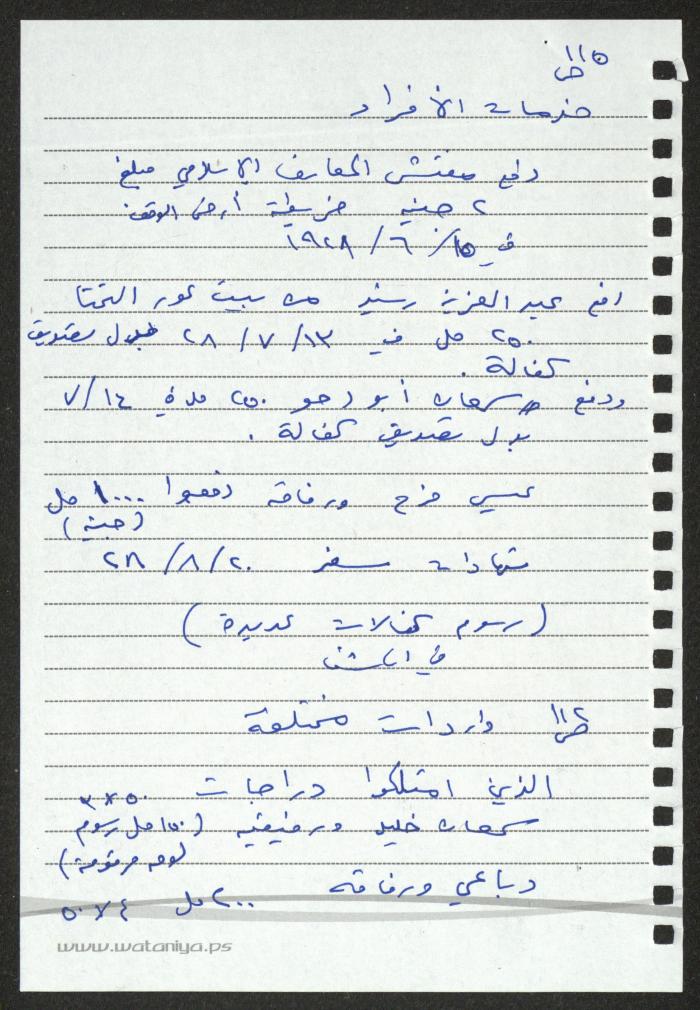 ص ١١٥
خدمات الأفراد
دفع مفتش المعارف الإسلامي مبلغ
٢ جنيه خريطة أرض الوقف
في ١٥/ ٦ / ١٩٢٨
دفع عبد العزيز رشيد من بيت عور التحتا
٢٥٠ مل في ١٣/ ٧ / ٢٨ بدل تصديق
كفالة .
ودفع سمعان أبو دحو ٢٥٠ مدة ١٤ / ٧
بدل تصديق كفالة .
عيسى فرح ورفاقه دفعوا ١٠٠٠ مل
(جنيه)
شهادات سفر ٢٠ / ٨ / ٢٨
(رسوم كفالات عديدة)
في
ص ١١٢ واردات مختلفة
الذين امتلكوا دراجات ٥٠ × ٣
سمعان خليل ورفيقيه (١٥٠ مل رسوم
لوحة مرقومة)
رباعي ورفاقه ٢٠٠ مل ٤ × ٥٠
www.wataniya.ps